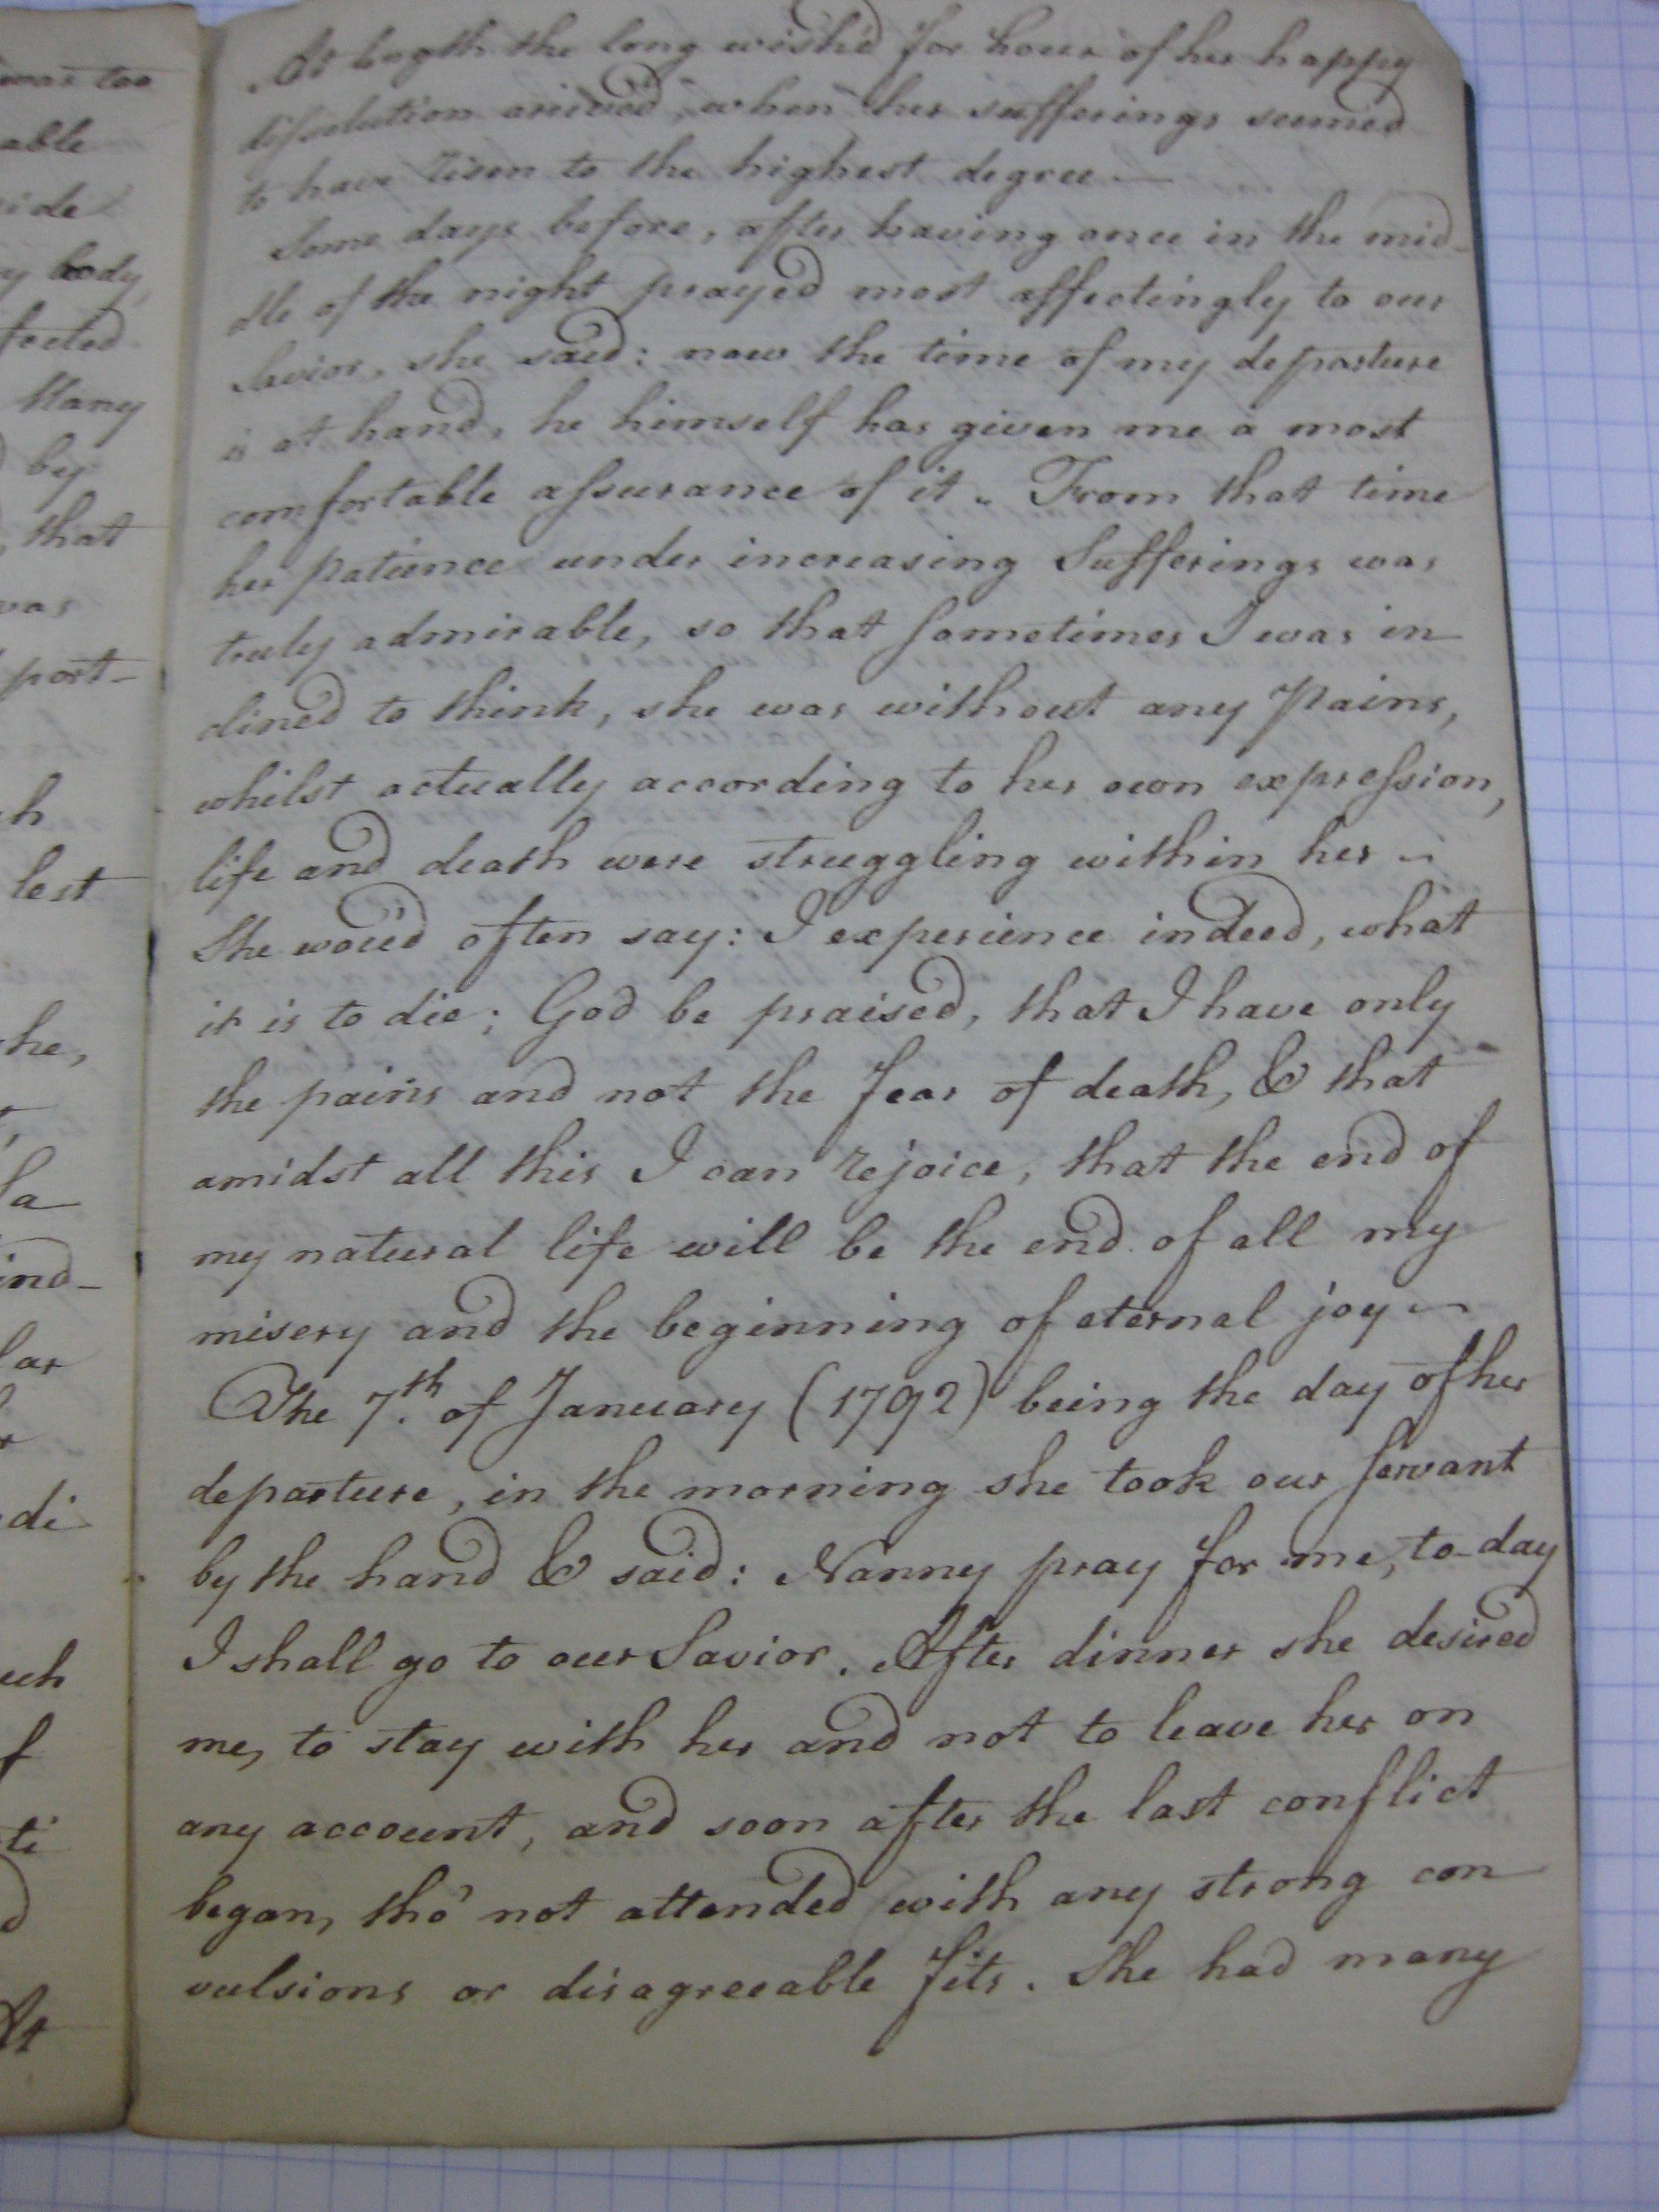 was too
able
ide
y body,
fected
Many
by
, that
was
port-
h
lest
she,
Sa
ind-
lar
di
uch
f
ti
d
At
At length the long wish'd for hour of her happy
dissolution arrived, when her sufferings seemed
to have risen to the highest degree.—
Some days before, after having once in the mid-
dle of the night prayed most affectingly to our
Savior, she said: now the time of my departure
is at hand, he himself has given me a most
comfortable assurance of it. From that time
her patience under increasing Sufferings was
truly admirable, so that sometimes I was in
clined to think, she was without any Pains,
whilst actually according to her own expression,
life and death were struggling within her ~
She wou'd often say: I experience indeed, what
it is to die; God be praised, that I have only
the pains and not the fear of death, & that
amidst all this I can rejoice, that the end of
my natural life will be the end of all my
misery and the beginning of eternal joy ~
The 7.th of January (1792) being the day of her
departure, in the morning she took our servant
by the hand & said: Nanny pray for me, to-day
I shall go to our Savior. After dinner she desired
me, to stay with her and not to leave her on
any account, and soon after the last conflict
began, tho' not attended with any strong con
vulsions or disagreeable fits. She had many